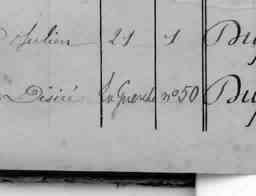 Julien 21 1 Du
Désiré la Guerche nº 50 Du